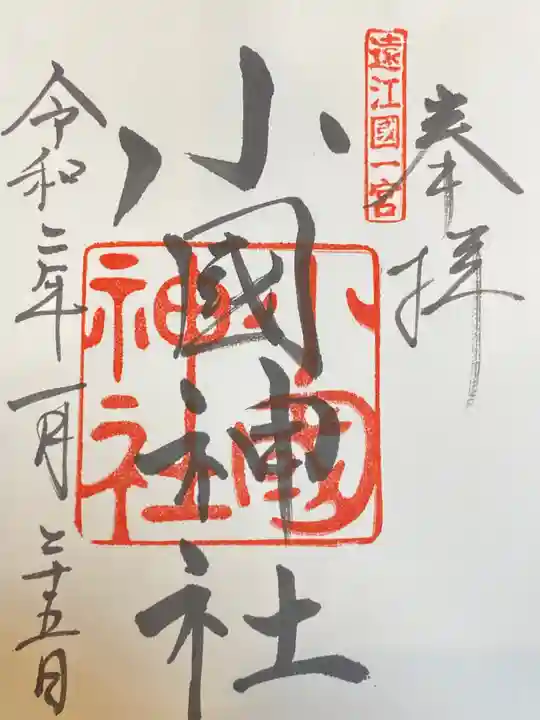 奉拝
遠江國一宮
小國神社
小國神社
令和二年一月二十五日